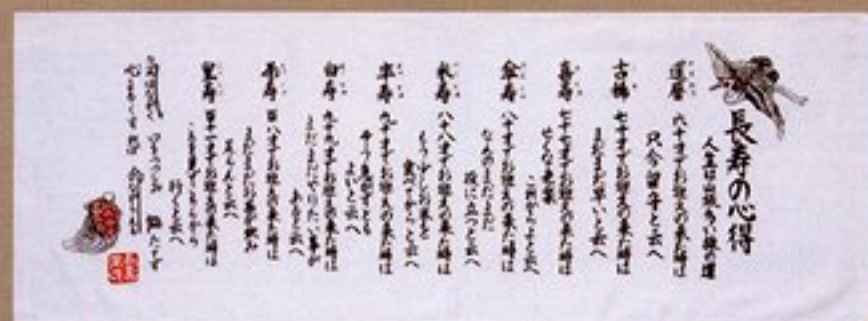 長寿の心得
人生は山坂多い旅の道
還暦 六十才でお迎えの来た時は
只今留守と云へ
古稀 七十才でお迎えの来た時は
まだまだ早いと云へ
喜寿 七十七才でお迎えの来た時は
せくな老楽
これからよと云へ
傘寿 八十才でお迎えの来た時は
なんのまだまだ
役に立つと云へ
米寿 八十八才でお迎えの来た時は
もう少しお米を
食べてからと云へ
卒寿 九十才でお迎えの来た時は
そう急がずとも
よいと云へ
白寿 九十九才でお迎えの来た時は
まだまだやりたい事が
あると云へ
茶寿 百八才でお迎えの来た時は
まだまだお茶が飲み
足らんと云へ
皇寿 百十一才でお迎えの来た時は
行くと云へ
腹たてず